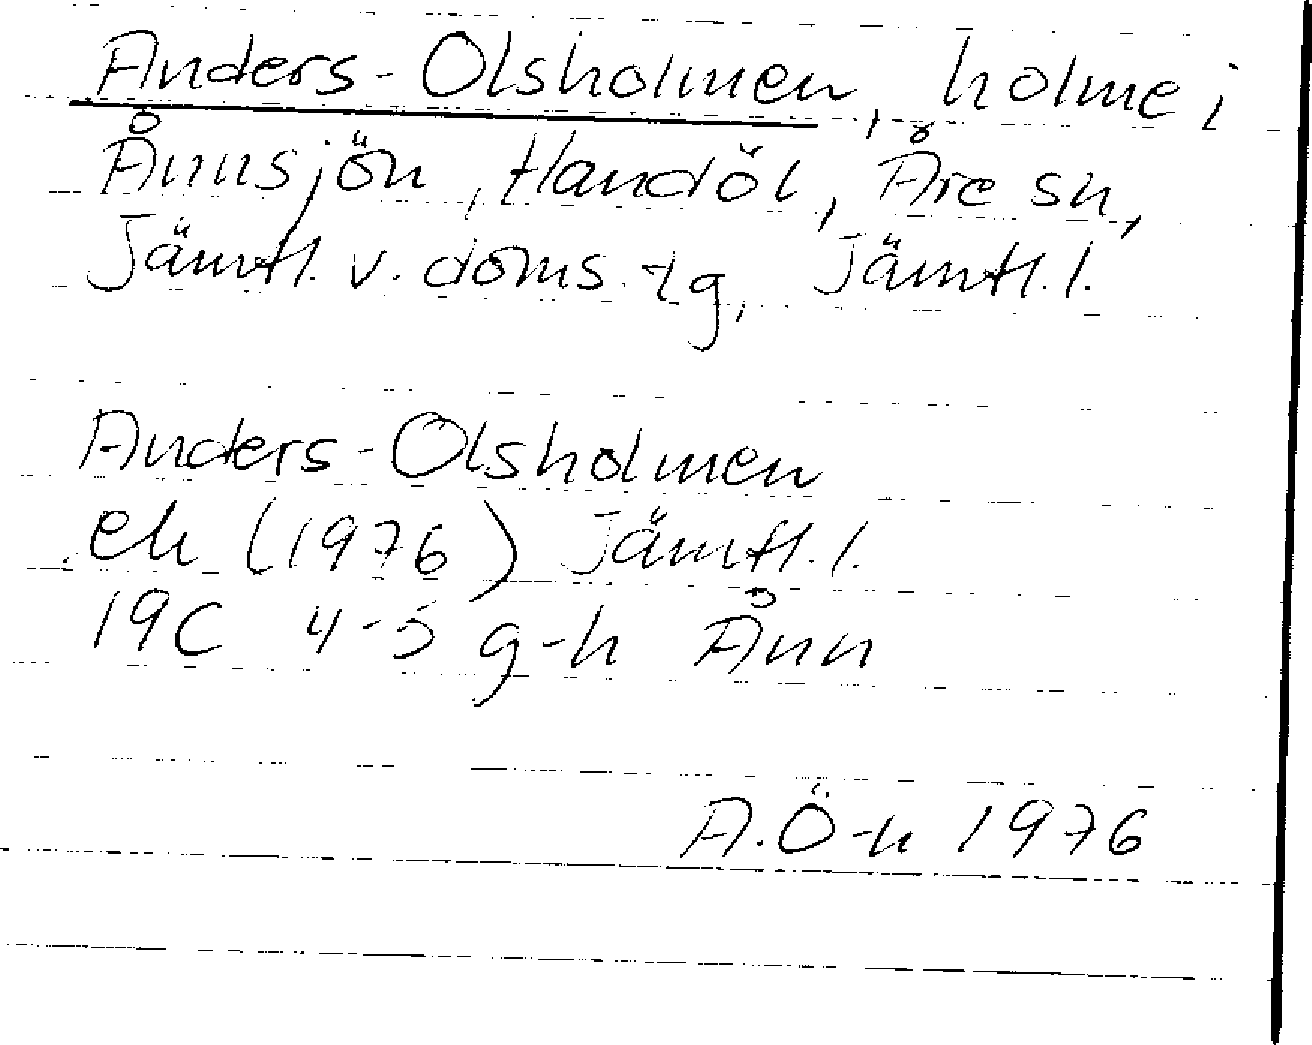 Anders-Olsholmen, holme i
Ånnsjön, Handöl, Åre sn,
Jämtl. v. doms.tg, Jämtl.l.
Anders-Olsholmen
ek (1976) Jämtl.l.
19C 4-5 g-h Ånn
A.Ö-n 1976